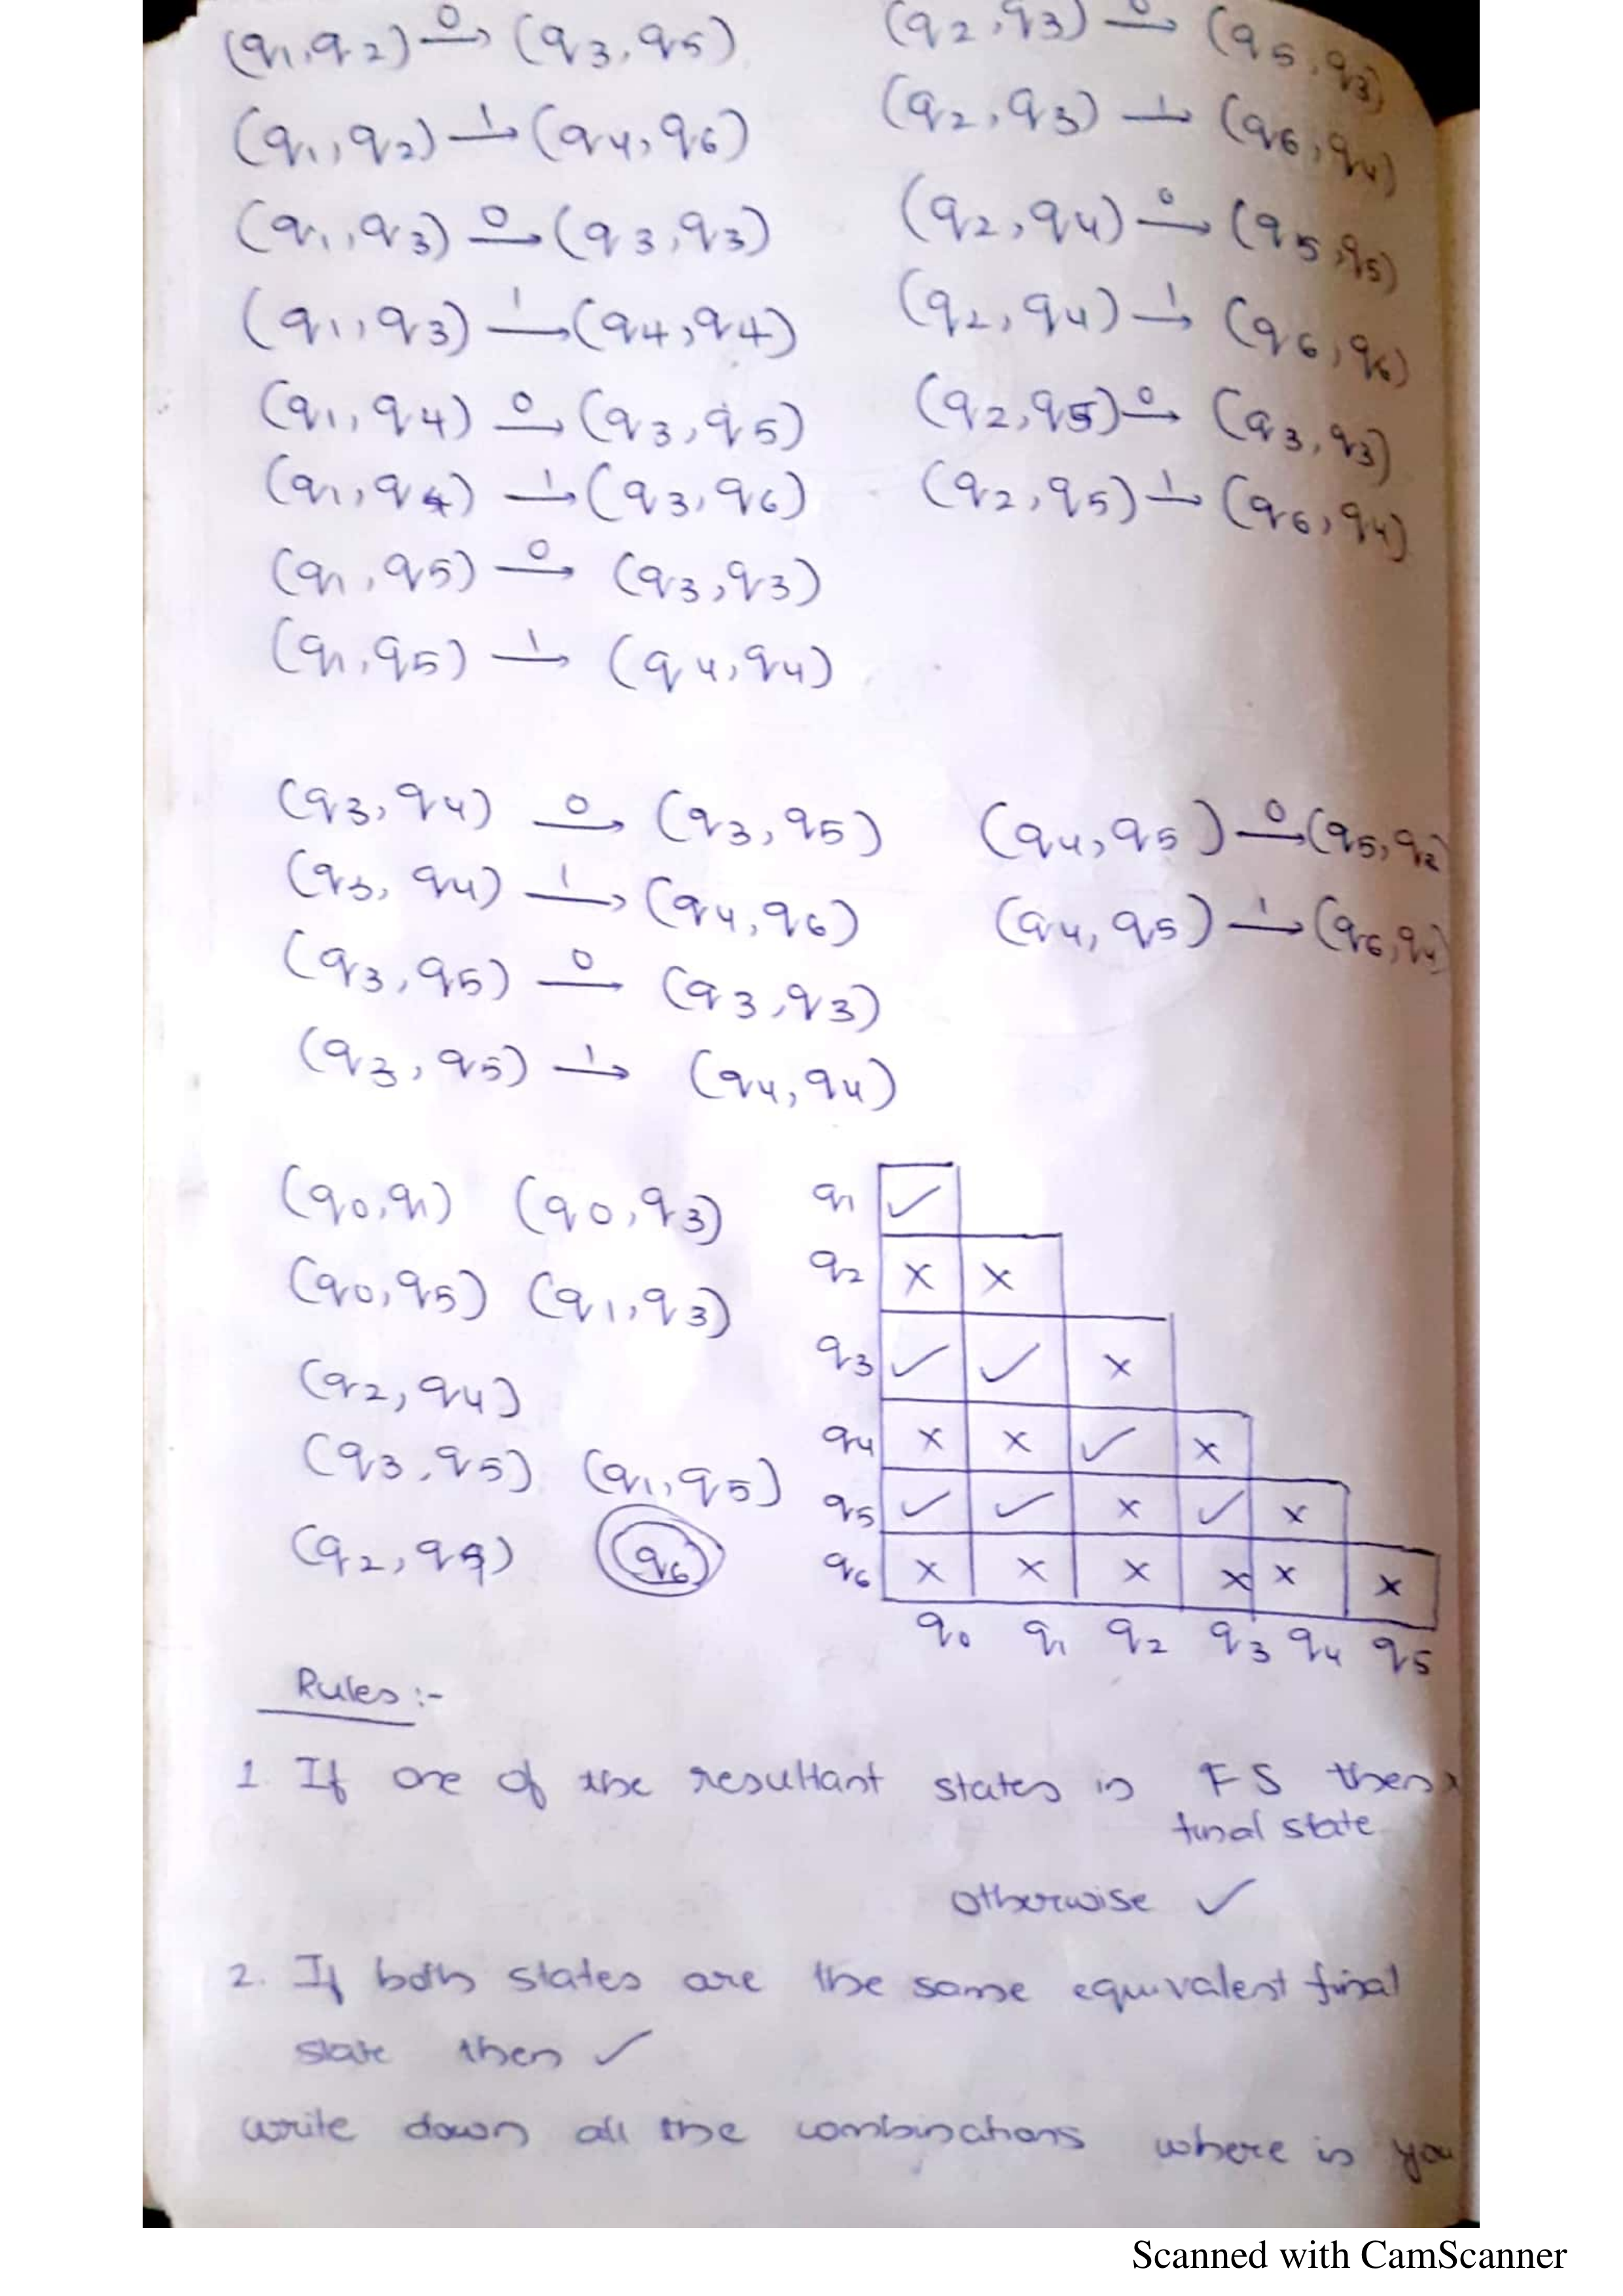 (q1,q2) 0→ (q3,q5)
(q1,q2) 1→ (q4,q6)
(q1,q3) 0→ (q3,q3)
(q1,q3) 1→ (q4,q4)
(q1,q4) 0→ (q3,q5)
(q1,q4) 1→ (q3,q6)
(q1,q5) 0→ (q3,q3)
(q1,q5) 1→ (q4,q4)
(q2,q3) 0→ (q5,q3)
(q2,q3) 1→ (q6,q4)
(q2,q4) 0→ (q5,q5)
(q2,q4) 1→ (q6,q6)
(q2,q5) 0→ (q3,q3)
(q2,q5) 1→ (q6,q4)
(q3,q4) 0→ (q3,q5)
(q3,q4) 1→ (q4,q6)
(q3,q5) 0→ (q3,q3)
(q3,q5) 1→ (q4,q4)
(q4,q5) 0→ (q5,q2
(q4,q5) 1→ (q6,q4)
(q0,q1) (q0,q3)
(q0,q5) (q1,q3)
(q2,q4)
(q3,q5) (q1,q5)
(q2,q4) q6
q1 ✓
q2 × ×
q3 ✓ ✓ ×
q4 × × ✓ ×
q5 ✓ ✓ × ✓ ×
q6 × × × × × ×
q0 q1 q2 q3 q4 q5
Rules :-
1. If one of the resultant states is FS then x
final state
otherwise ✓
2. If both states are the same equivalent final
state then ✓
write down all the combinations where is you
Scanned with CamScanner